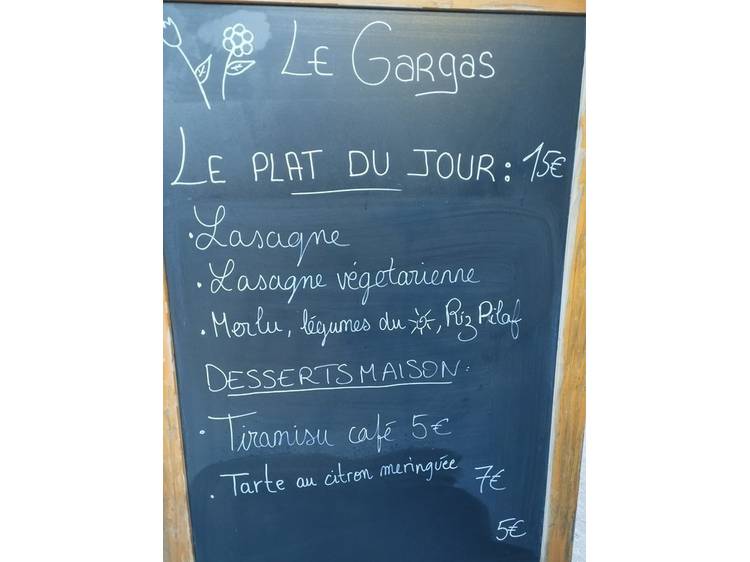 LE GARGAS
LE PLAT DU JOUR : 15€
· Lasagne
· Lasagne végétarienne
· Merlu, légumes du ☀, Riz Pilaf
DESSERTS MAISON :
· Tiramisu café 5€
· Tarte au citron meringuée 7€
5€